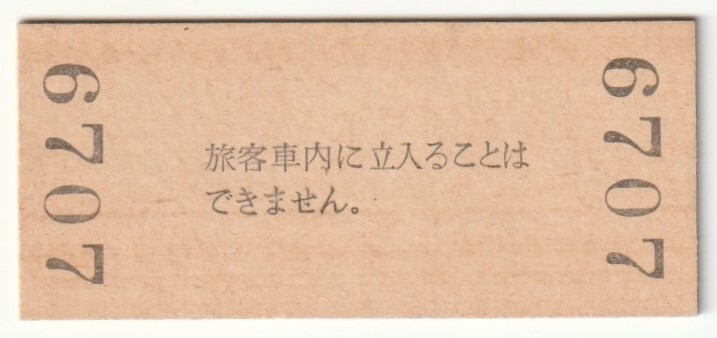 6707
旅客車内に立入ることは
できません。
6707